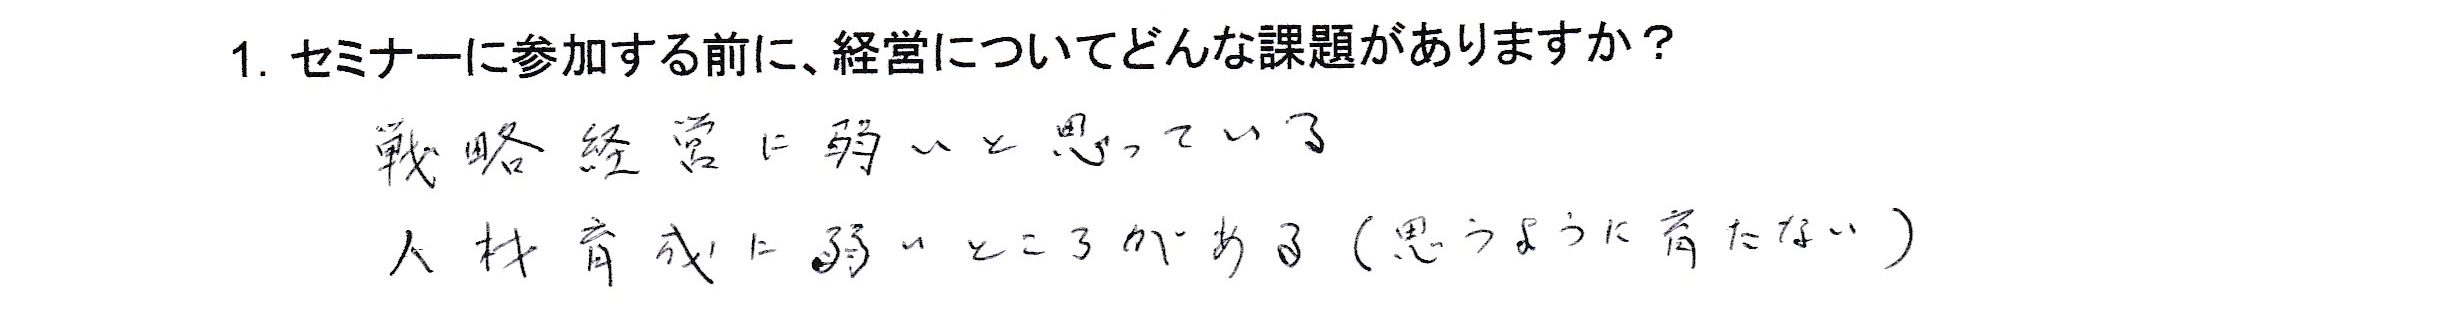 1. セミナーに参加する前に、経営についてどんな課題がありますか？
戦略経営に弱いと思っている
人材育成に弱いところがある(思うように育たない)